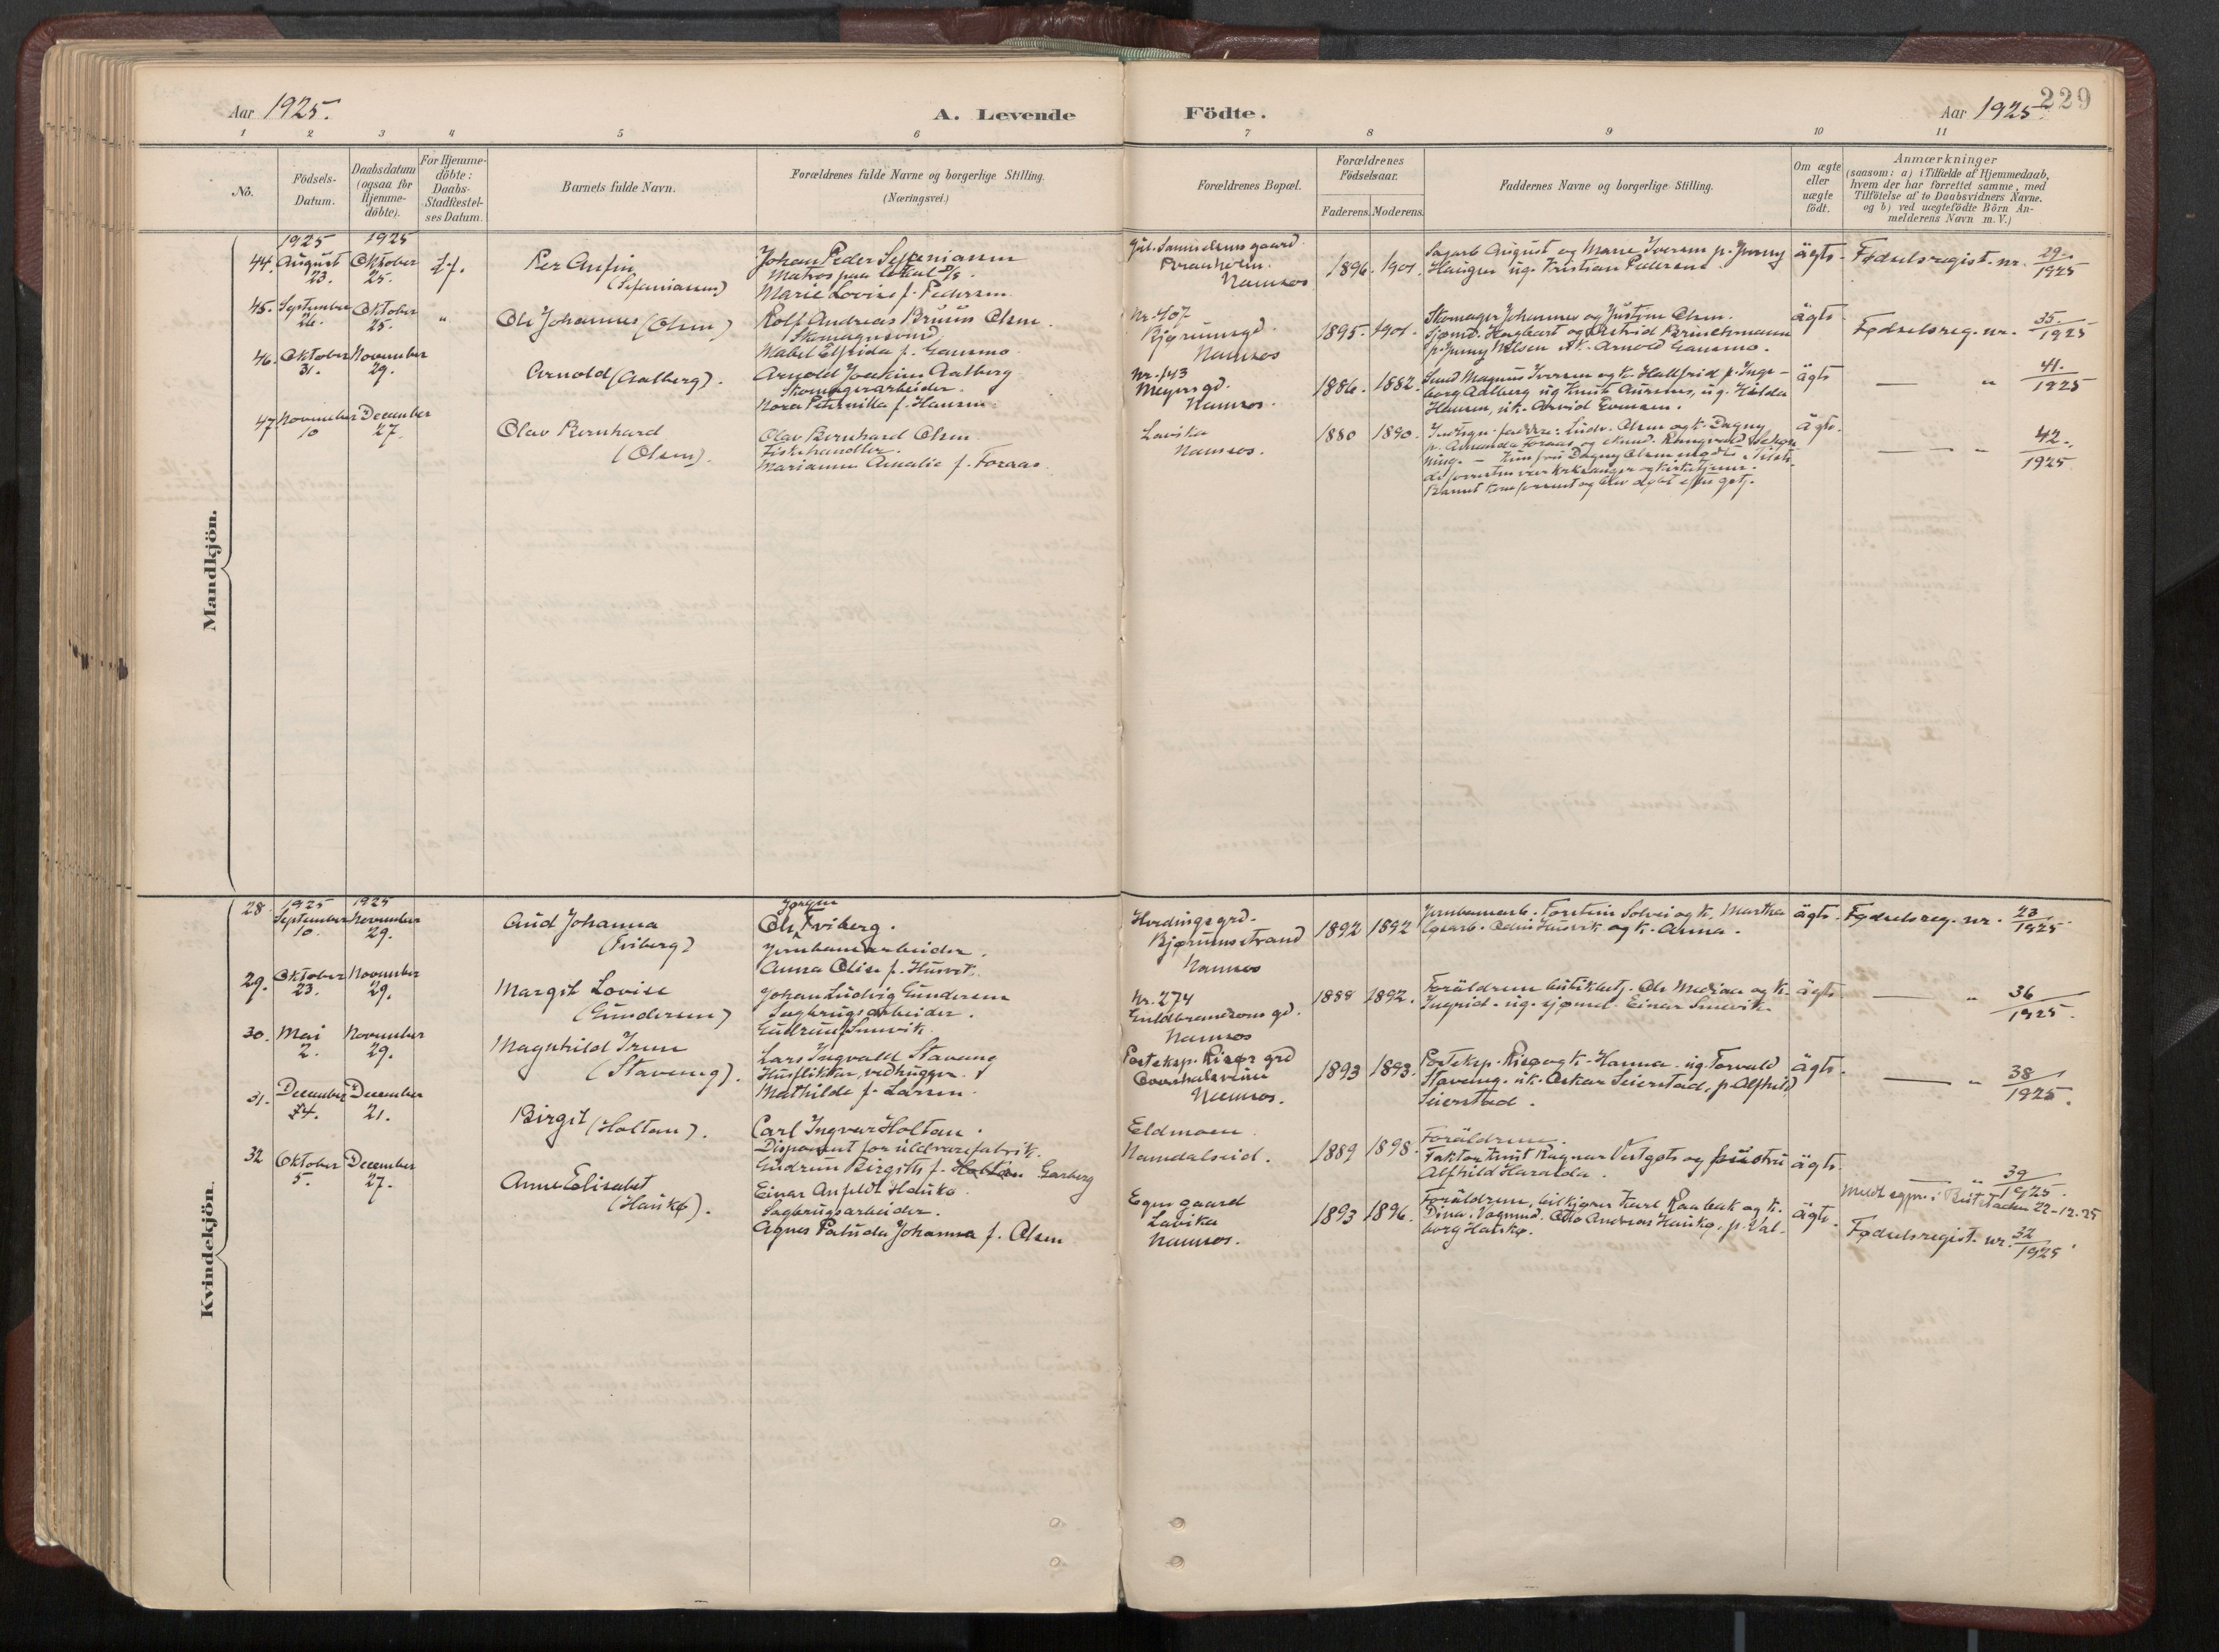 Aar 1925.
A. Levende
Födte.
Aar 1925.
229
1 2 3 4 5 6 7 8 9 10 11
No.
Födsels-
Datum.
Daabsdatum
(ogsaa for
Hjemme-
döbte).
For Hjemme-
döbte:
Daabs-
Stadfestel-
ses Datum.
Barnets fulde Navn.
Forældrenes fulde Navne og borgerlige Stilling.
(Næringsvei.)
Forældrenes Bopæl.
Forældrenes
Födselsaar.
Faderens. Moderens.
Faddernes Navne og borgerlige Stilling.
Om ægte
eller
uægte
født.
Anmærkninger
(saasom: a) i Tilfælde af Hjemmedaab,
hvem der har forrettet samme, med
Tilföielse af to Daabsvidners Navne.
og b) ved uægtefödte Börn An-
melderens Navn m. V.)
Mandkjön.
1925 1925
44. August 23. Oktober 25.
Per Anfin
Johan Peder
Matros paa Lokal D/S
Marie Lovise f. Pedersen
Namsos
1896. 1901.
August og Marie Iversen p. Jenny
Haugen ug. Kristian Pedersen
ägte.
Fødselsregist. nr. 29./1925
45. September 26. Oktober 25. "
Ole Johannes (Olsen)
Rolf Andreas Bruun Olsen.
Skomagersvend
Mabel Elfrida f. Gansmo
Nr. 407
Bjørumsgd.
Namsos
1895. 1901.
Skomager Johannes og Justine Olsen.
Sjømd. Hagbart og Astrid Brinchmann
p. Jenny Nilsen uk. Arnold Gansmo.
ägte
Fødselsreg. nr. 35./1925
46. Oktober 31. November 29.
Arnold (Aalberg).
Arnold Joakim Aalberg
Skomagerarbeider.
Nora Peternilla f. Hansen
Nr. 143
Meyersgd.
Namsos.
1886. 1882.
Smed Magnus Iversen og k. Hallfrid p. Inge-
borg Aalberg ug Knut Aursnes, ug. Hilda
Hansen, uk. Arvid Evensen.
ägte
— " 41./1925
47. November 10 December 27.
Olav Bernhard
(Olsen).
Olav Bernhard Olsen
Fiskehandler.
Marianne Amalie f. Foraas
Lavika
Namsos.
1880 1890.
faddre: Ludv. Olsen og k. Dagny
p. Amanda Foraas og
Barnet kom forsent og blev døbt efter gstj.
ägte.
— " 42./1925
Kvindekjön.
1925 1925
28. September 10. November 29.
Aud Johanna
(Friberg)
Jørgen
Ole Friberg.
Jernbanearbeider.
Anna Olise f. Husvik
Herdingsgrd.
Bjørumsstrand
Namsos
1892 1892
Jernbanearb. Torstein Solvei og k. Martha
Odin Husvik og k. Anna.
ägte.
Fødselsreg. nr. 23/1925
29. Oktober 23. November 29.
Margit Lovise
(Gundersen)
Johan Ludvig Gundersen
Sagbrugsarbeider.
Gudrun f. Smevik.
Nr. 274
Guldbrandsons gd.
Namsos
1889 1892.
Foräldrene butikbetj. Ole Mediaa og k.
Ingrid. ug. sjømd. Einar Smevik.
ägte
— " 36/1925.
30. Mai 2. November 29.
Magnhild Irene
(Staveng).
Lars Ingvald Staveng
Husflikker, vedhugger.
Mathilde f. Larsen.
Posteksp. Risør grd
Namsos.
1893 1893.
Posteksp. Risø og k. Hanna. ug. Torvald
Staveng. uk. Oskar Seierstad, p. Alfhild
Seierstad.
ägte.
— " 38/1925.
31. December 14. December 21.
Birgit (Holtan).
Carl Ingvar Holtan.
Disponent for uldvarefabrik.
Gudrun Birgith f. Holtan Garberg
Eldmoen
Namdalseid.
1889 1898.
Foräldrene.
Faktor Knut Ragnar Vestgøts og hustru
Alfhild Haralda.
ägte
" 39/1925.
22-12-25
32 Oktober 5. December 27.
Anne Elisabet
(Haukø).
Einar Anfeldt Haukø.
Sagbrugsarbeider.
Agnes Paluda Johanna f. Olsen
Egen gaard
Lavika
Namsos.
1893 1896.
Foräldrene, bilkjører Karl Raabak og k.
Dina. Vognmd. Otto Andreas Haukø, p. Val-
borg Haukø.
ägte.
Fødselsregist. nr. 32/1925.